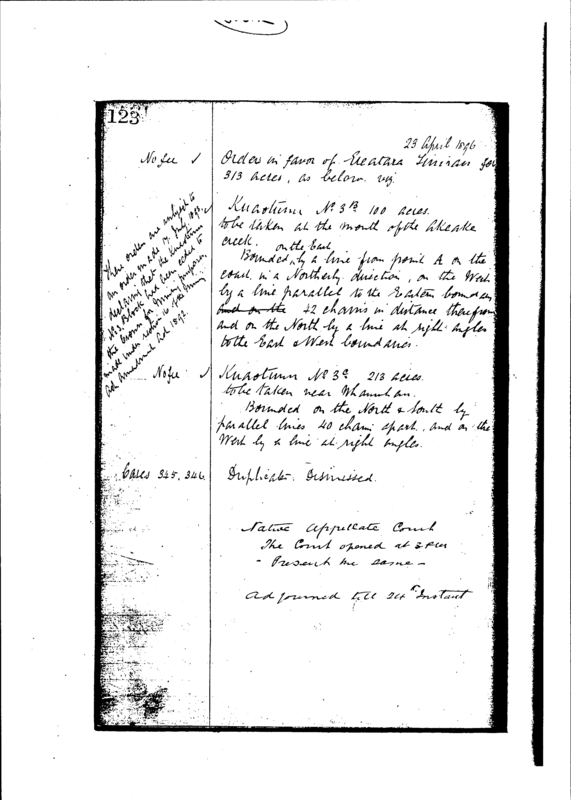 123
23 April 1896
No fee Order in favor of for
313 acres, as below. viz
Kuaotunu No 3B 100 acres.
to be taken at the mouth of the Akeake
creek.
on the East
Bounded, by a line from point A on the
coast in a Northerly direction, on the West
by a line parallel to the Eastern boundary
and on the 42 chains in distance therefrom
and on the North by a line at right angles
to the East & West boundaries.
These orders are subject to
an order made 17 July 1893
declaring that the Kuaotunu
No 3 Block had been ceded to
the Crown for Mining purposes
made under section 16 of the Mining
Act Amendment Act 1892.
No fee Kuaotunu No 3C 213 acres.
to be taken near
Bounded on the North & South by
parallel lines 40 chains apart, and on the
West by a line at right angles.
Cases 345, 346. Duplicate. Dismissed.
Native Appellate Court
The Court opened at
- Present the same -
Adjourned till 24th Instant